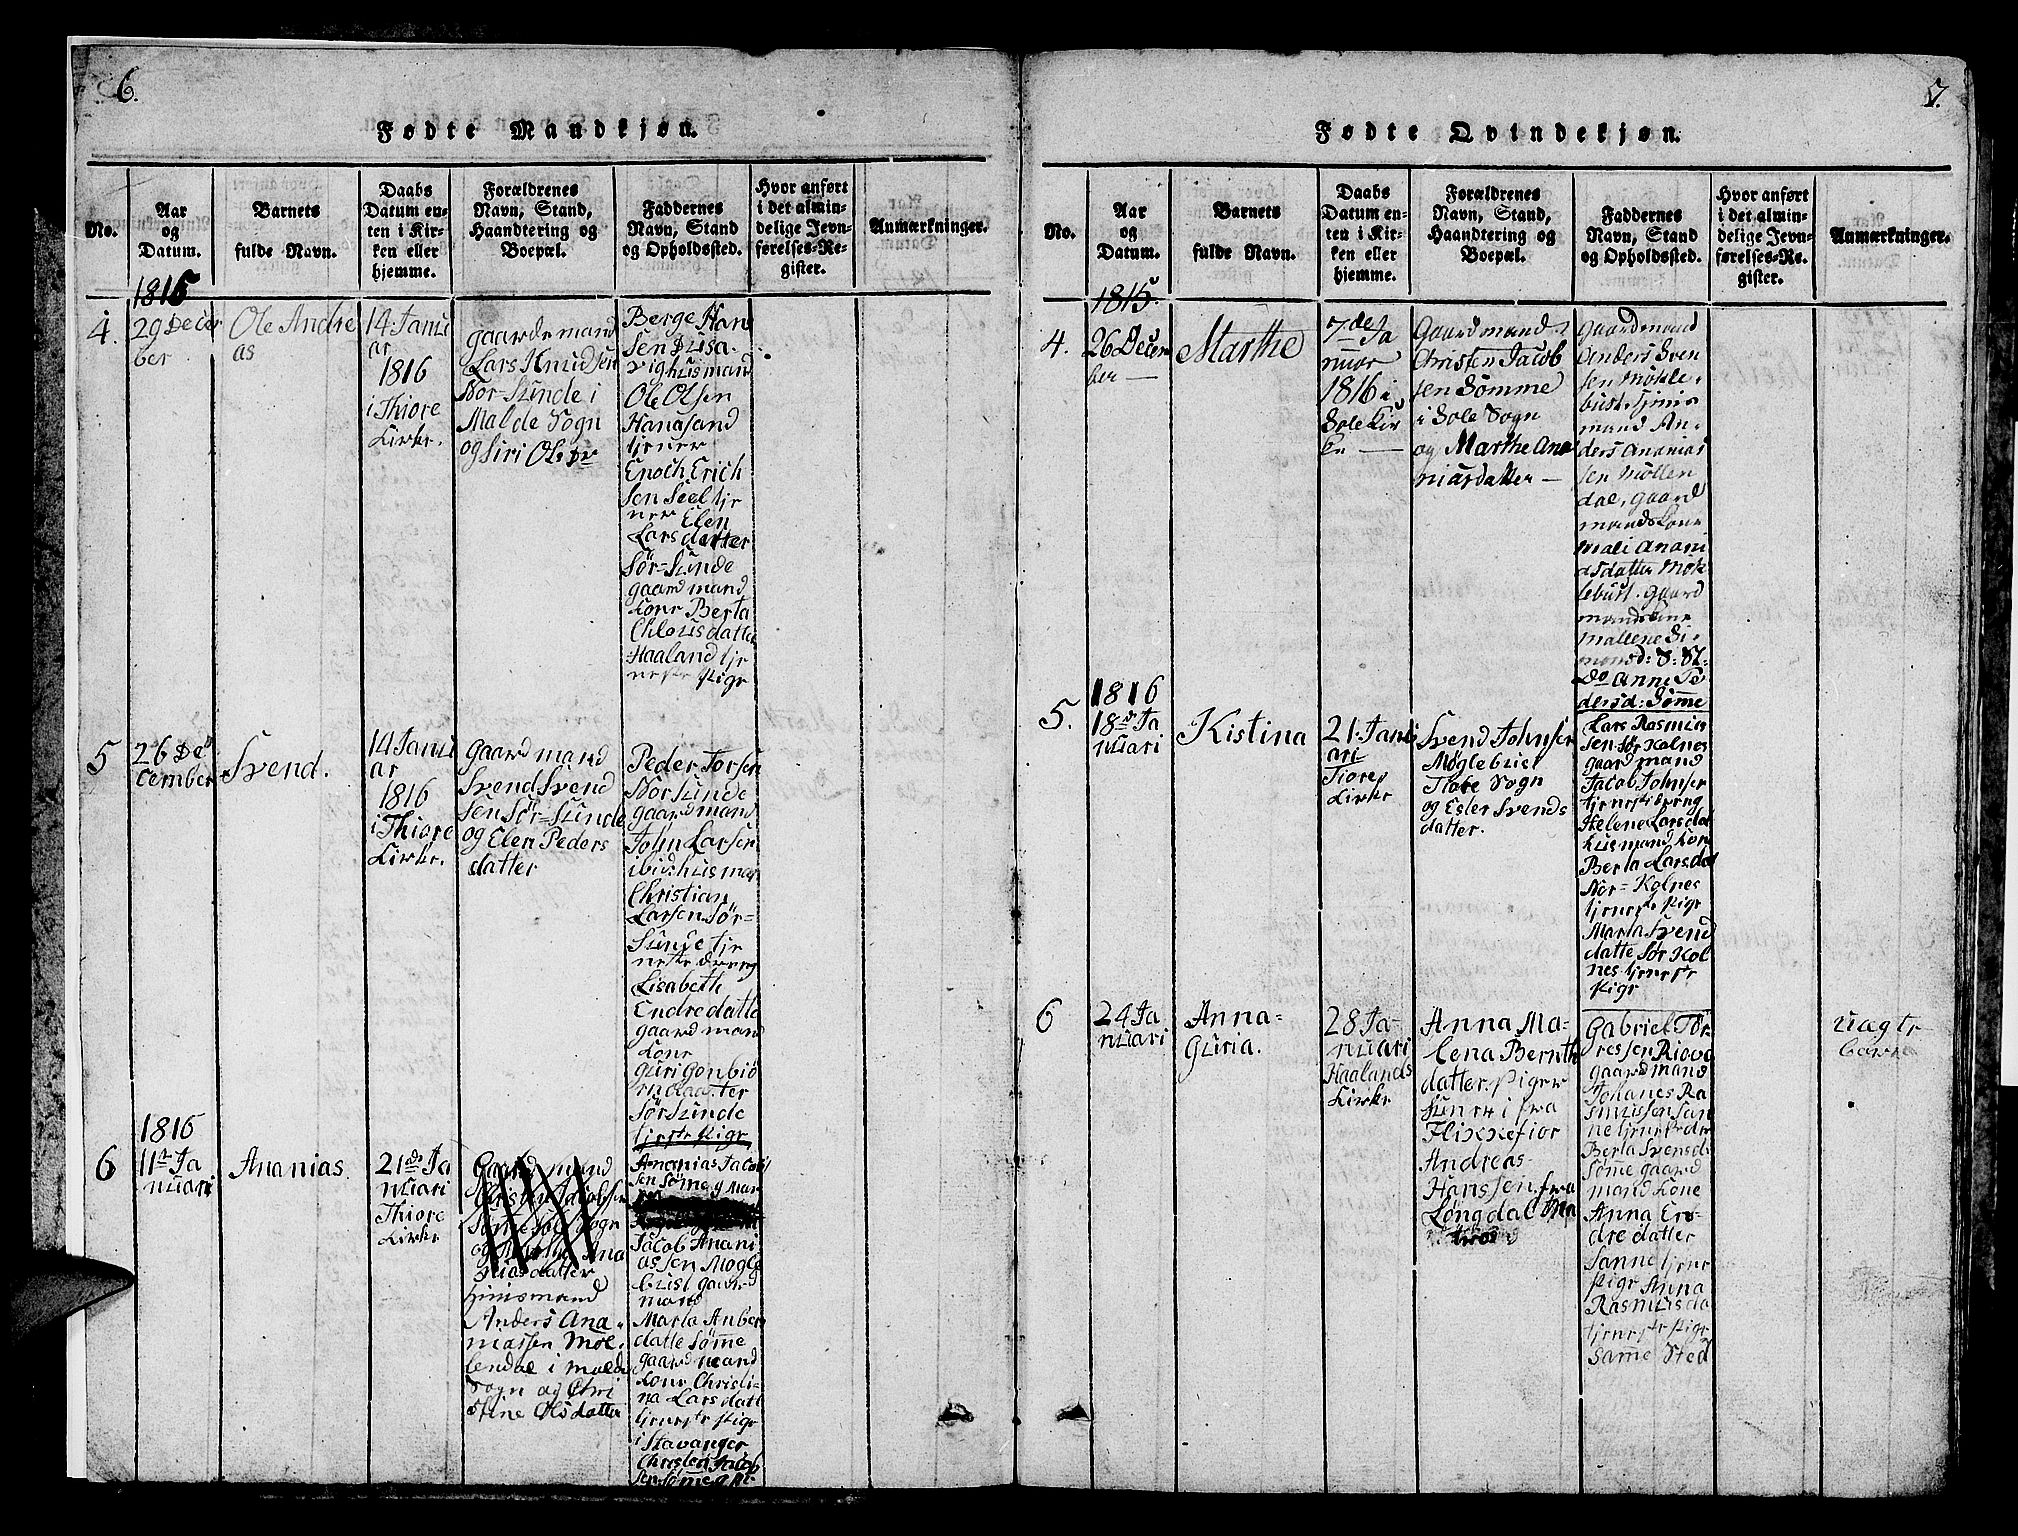 6.
Fødte Mandkjøn.
No.
Aar
og
Datum.
Barnets
fulde Navn.
Daabs
Datum en-
ten i Kir-
ken eller
hjemme.
Forældrenes
Navn, Stand,
Haandtering og
Boepæl.
Faddernes
Navn, Stand
og Opholdssted.
Hvor anført
i det almin-
delige Jevn-
førelses-Re-
gister.
Anmærkninger.
1815
4.
29 Decem
ber
Ole Andre
as
14 Janu
ar
1816
i Thiore
Kirke.
gaardemand
Lars Knudsen
Nor-Sunde i
Malde Sogn
og Siri Olsdr
Berge Han
sen Dusa
vig husmand
Ole Olsen
Hanasand
tjener
Enoch Erich
sen Seel tje
ner Elen
Larsdatter
Sør-Sunde
gaardmand
Kone Berta
Chlousdatter
Haaland tje
neste Pige
5
26 De
cember
Svend.
14 Janu
ar
1816
i Thiore
Kirke.
gaardmand
Svend Svend
sen Sør-Sunde
og Elen Peders
datter
Peder Torsen
Nor Sunde
gaardmand
John Larsen
ibid: husman
Christian
Larsen Sør-
Sunde tje
neste dreng
Lisabeth
Endredatte
gaardmand
Kone
Guri Gonbiø
rnsdaatter
Sør Sunde
tjeste Pige
1816
6
11te Ja
nuari
Ananias.
21de Ja
nuari
Thiore
Kirke
Gaardmand
Christen Jacobsen
Sømme Sole Sogn
og Marthe Ana
niasdatter
huusmand
Anders Ana-
niassen Møl-
lendal i Malde
Sogn og Chri
stine Olsdatter
Ananias Jacob
sen Sømme g Man
Jacob Anani
assen Møgle
bust gaard
mand
Marta Anders
datte Sømme
gaardmand
Kone Christi-
na Larsdatt
tjeneste Pige
i Stavanger
Christen Jacob
sen Sømme g M
7.
Fødte Qvindekjøn.
No.
Aar
og
Datum.
Barnets
fulde Navn.
Daabs
Datum en-
ten i Kir-
ken eller
hjemme.
Forældrenes
Navn, Stand,
Haandtering og
Boepæl.
Faddernes
Navn, Stand
og Opholdssted.
Hvor anført
i det almin-
delige Jevn-
førelses-Re-
gister.
Anmærkninger.
1815.
4.
26 Decem
ber
Marthe
7de Ja
nuar
1816 i
Sole Kir
ke
Gaardmand
Christen Jacob
sen Sømme
i Sole Sogn
og Marthe Ana
niasdatter
gaardmand
Anders Sven
sen Møkle-
bust. tjenis
mand An-
ders Ananias
sen Møllen
dal, gaard
mands Kone
Mali Anani
asdatter Møk
lebust. gaard
mands Kone
Mallene Si-
monsd: S: St.
Do Anne Pe
dersd: Sømme
5.
1816
18de Ja
nuari
Kistina
21. Janu
ari
Tiores
Kirke
Svend Johnsen
Møglebust
Tiore Sogn
og Ester Svends
datter.
Lars Rasmus
sen Sør Kolnes
gaardmand
Jacob Johnsen
tjeneste dreng
Helene Larsdat
husmand Kone
Berta Larsdat
Nor-Kolnes
tjeneste Pige
Marta Svend
datte Sør Kol
nes tjeneste
Pige
6
24 Ja
nuari
Anna-
Guria.
28 Ja-
nuari
Haalands
Kirke
Anna Ma-
lena Bernth
datter. Piger
tjener i fra
Flikkefior
Andreas
Hanssen. fra
Longdal Ma
tros
Gabriel Tør
ressen Riove
gaardmand
Johanes Ra
smussen San
ne tjeneste dre
Berta Svensda
Sømme gaard
mand Kone
Anna En-
dre datter
Sanne tjene
Pige Anna
Rasmusda
tjeneste Pige
samme Sted
uægte
barn